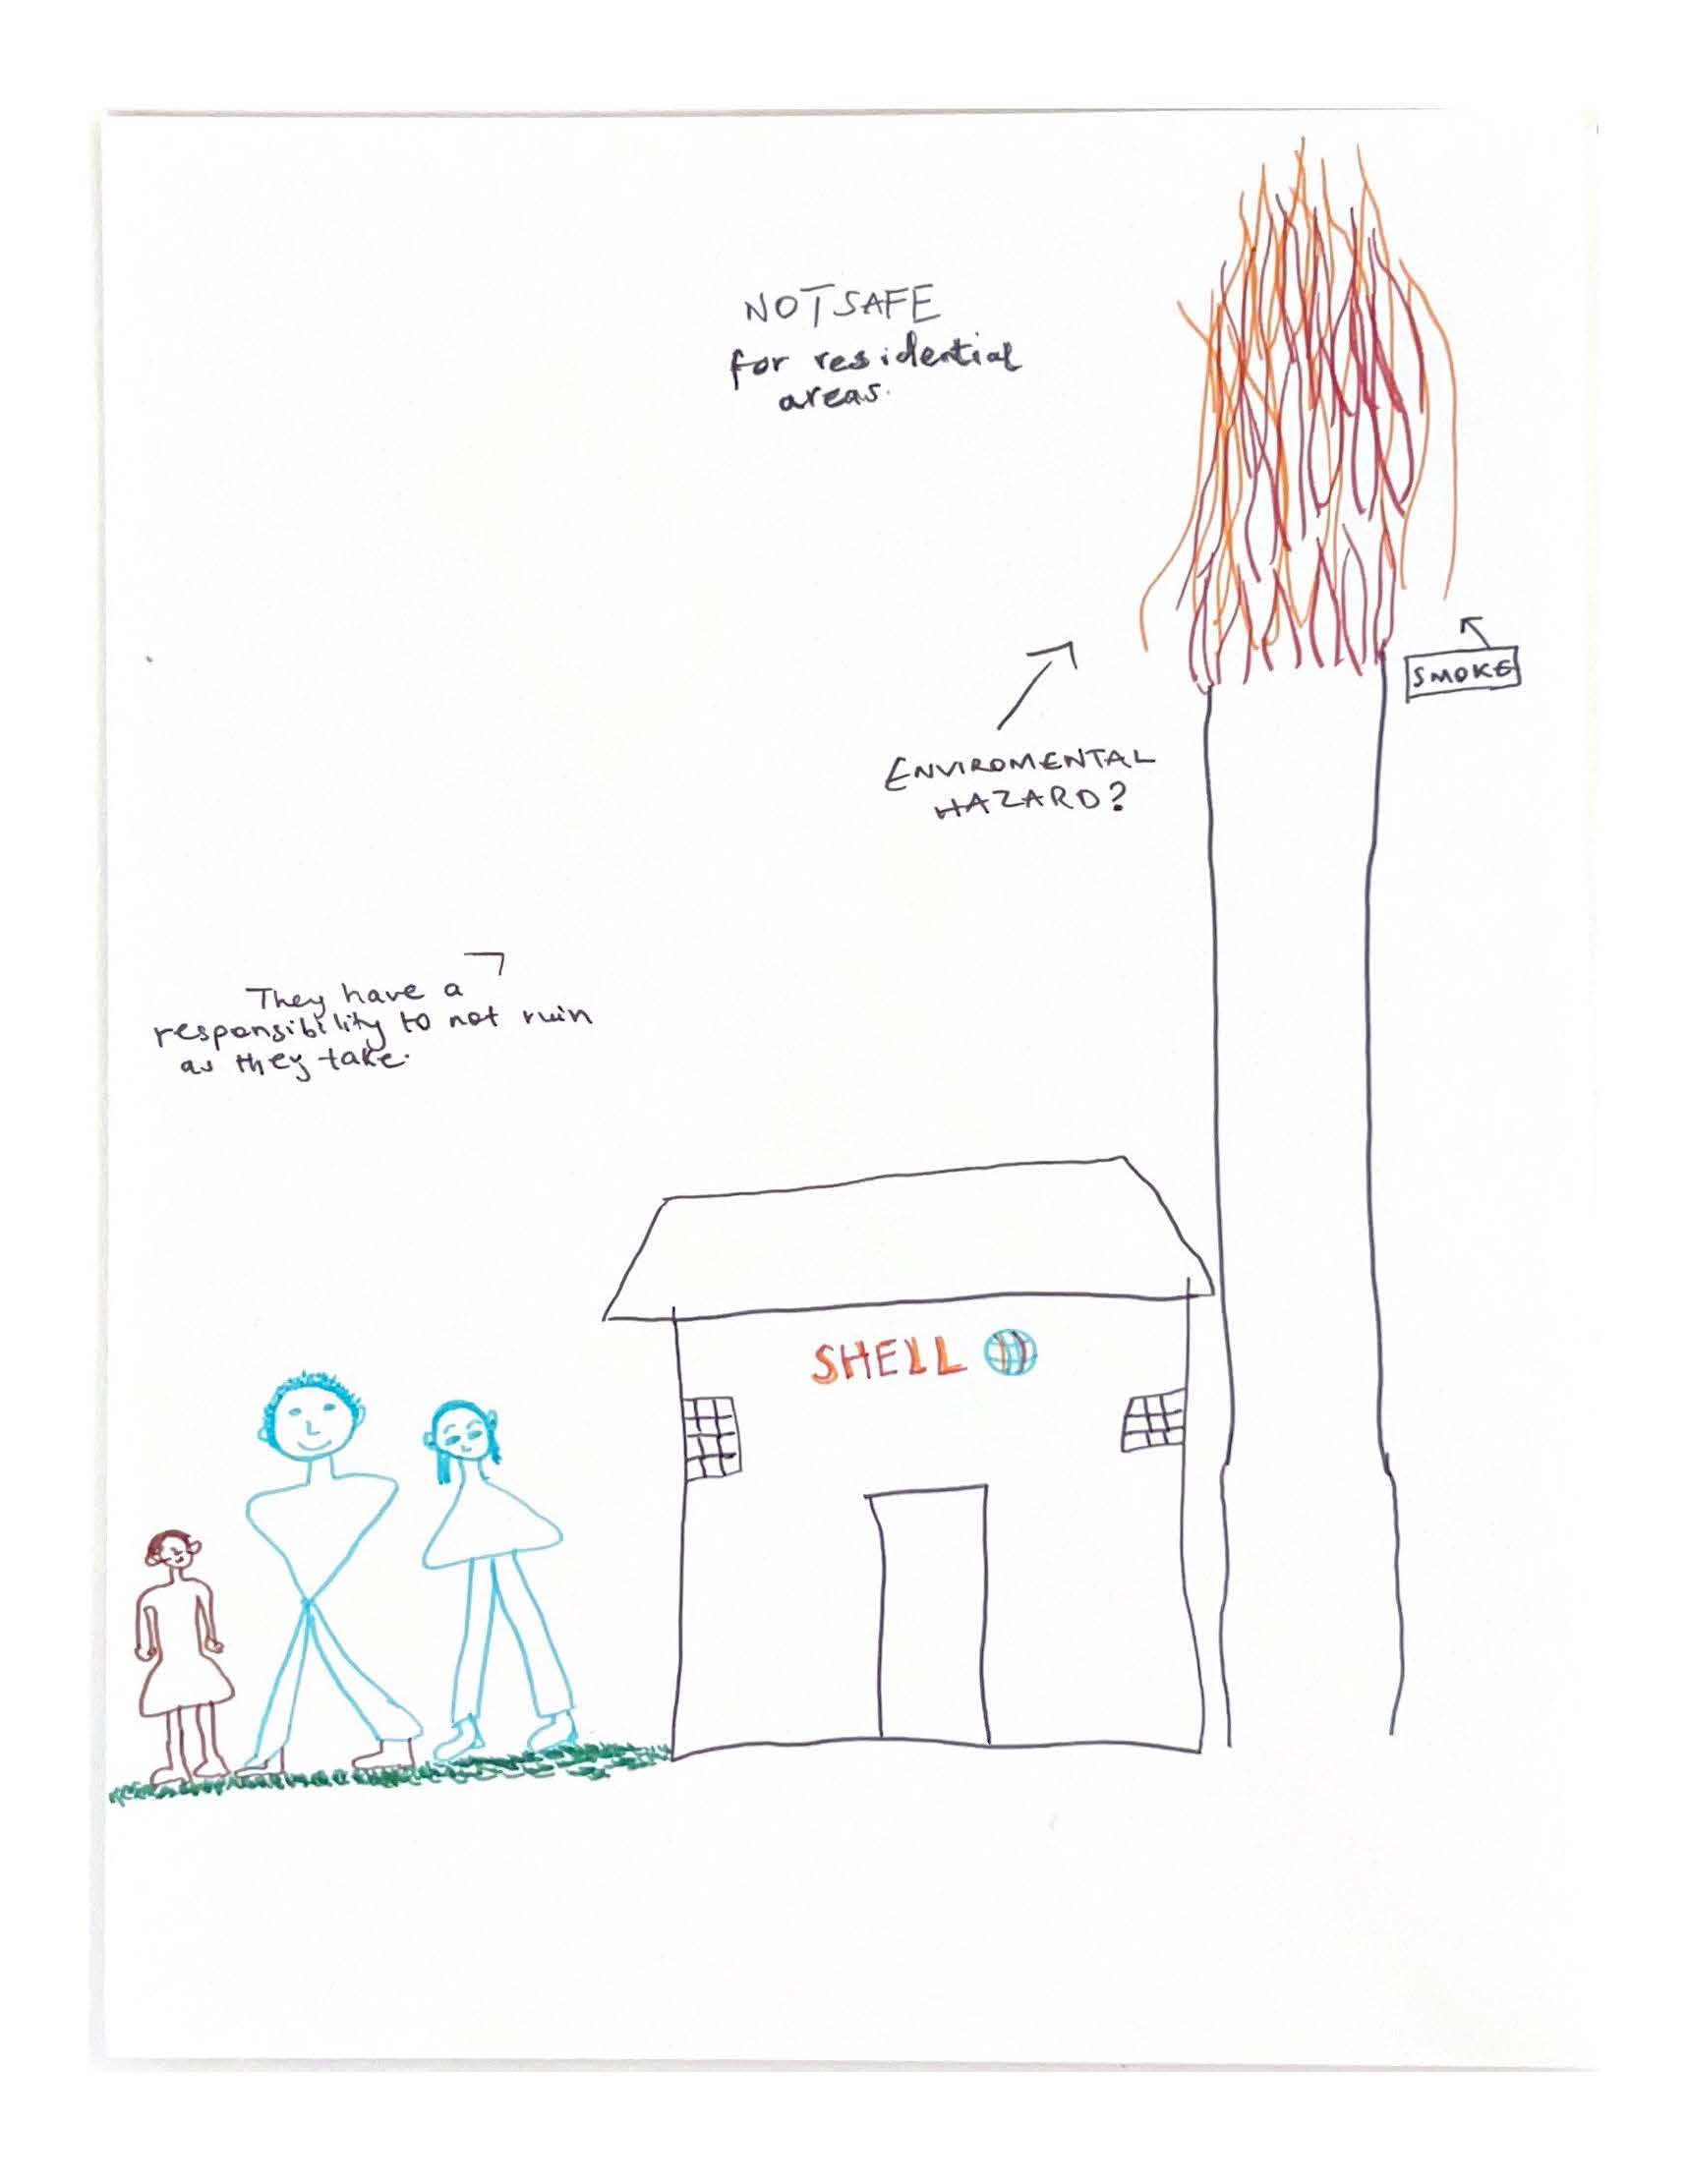 NOT SAFE
for residential
areas.
SMOKE
ENVIROMENTAL
HAZARD?
They have a
responsibility to not ruin
as they take.
SHELL